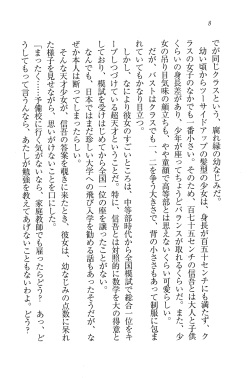 8
でが同じクラスという、腐れ縁の幼なじみだ。
幼い頃からツーサイドアップの髪型の少女は、身長が百五十センチにも満たず、ク
ラスの女子のなかでも一番小さい。そのため、百七十五センチの信吾とは大人と子供
くらいの身長差があり、少年が座ってちょうどバランスが取れるくらいだ。また、少
女の吊り目気味の顔立ちも、やや童顔で高等部とは思えないくらい可愛らしい。
だが、バストはクラスでも一、二を争う大きさで、背の小ささもあって制服に包ま
れていてもかなり目立つ。
しかし、なにより彼女のすごいところは、中等部時代から全国模試で総合一位をキ
ープしつづけている超天才ということだ。特に、信吾とは対照的に数学を大の得意と
しており、模試を受けはじめてから全国一位の座を譲ったことがない。
なんでも、日本ではまだ珍しい大学への飛び入学を勧める話もあったそうだが、な
ぜか本人は断ってしまったらしい。
そんな天才少女が、信吾の答案を覗きに来るや、彼女は、幼なじみの点数に呆れ
た様子を見せながら、思いがけないことを口にした。
「まったく……予備校に行く気がないなら、家庭教師でも雇ったらどう？　あっ、ど
うしてもって言うんなら、あたしが勉強を教えてあげないこともないわよ。どう？」